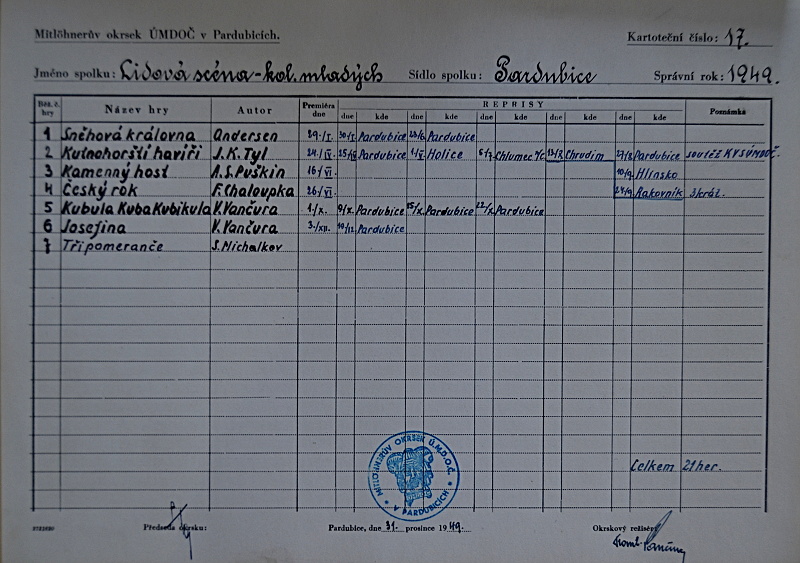 Mitlöhnerův okrsek ÚMDOČ v Pardubicích.
Kartoteční číslo: 17.
Jméno spolku: Lidová scéna-kol. mladých Sídlo spolku: Pardubice Správní rok: 1949.
Běž. č. hry Název hry Autor Premiéra dne REPRISY Poznámka
dne kde dne kde dne kde dne kde dne kde
1 Sněhová královna Andersen 29./I. 30/I Pardubice Pardubice
2 Kutnohorští havíři J.K. Tyl 24./IV. Pardubice Holice Chlumec n/c Chrudim Pardubice soutěž KVSÚMDOČ.
3 Kamenný host A.S. Puškin 16/VI. 10/9. Hlinsko
4 Český rok F. Chaloupka 26/VI. 24/9. Rakovník 3kráľ.
5 Kubula Kuba Kubikula V. Vančura 1./X. 9/X. Pardubice 15/X. Pardubice 22/X. Pardubice
6 Josefina V. Vančura 3./XII. 10/12 Pardubice
7 Tři pomeranče S. Michalkov
Celkem 21 her.
MITLÖHNERŮV OKRSEK Ú.M.D.O.Č. V PARDUBICÍCH
Předseda okrsku: Pardubice, dne 31. prosince 1949. Okrskový režisér: